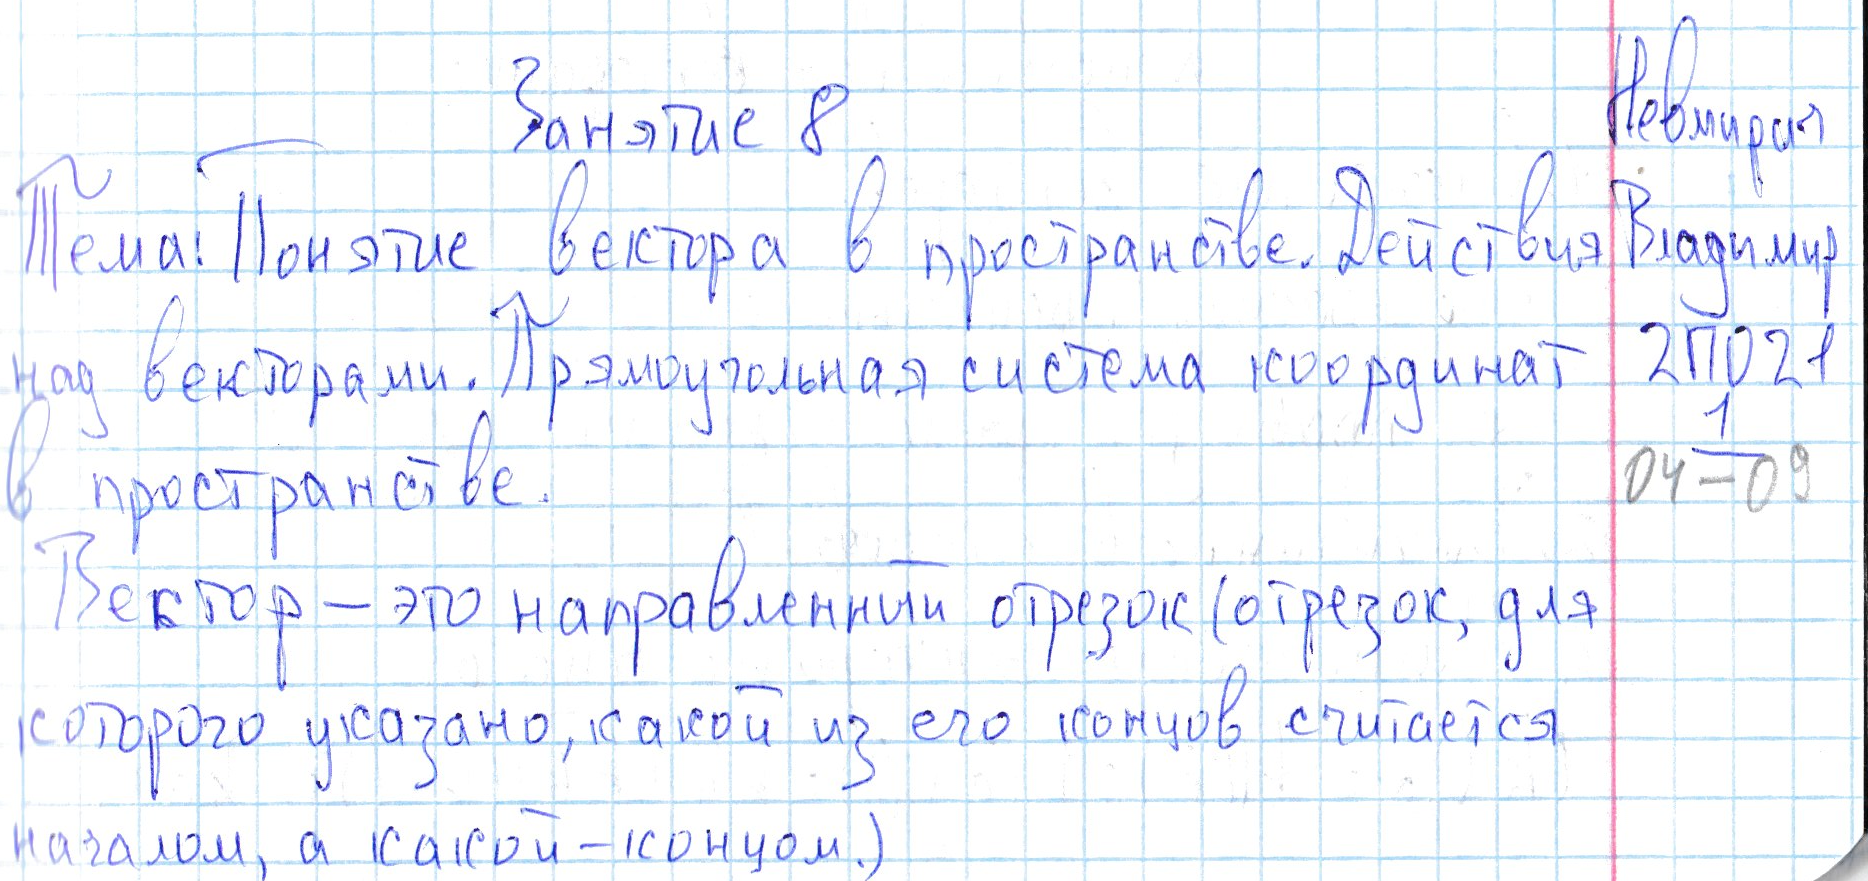 Занятие 8
Тема: Понятие вектора в пространстве. Действия
над векторами. Прямоугольная система координат
в пространстве.
Вектор – это направленный отрезок (отрезок, для
которого указано, какой из его концов считается
началом, а какой – концом.)
Владимир
2П021
1
04-09